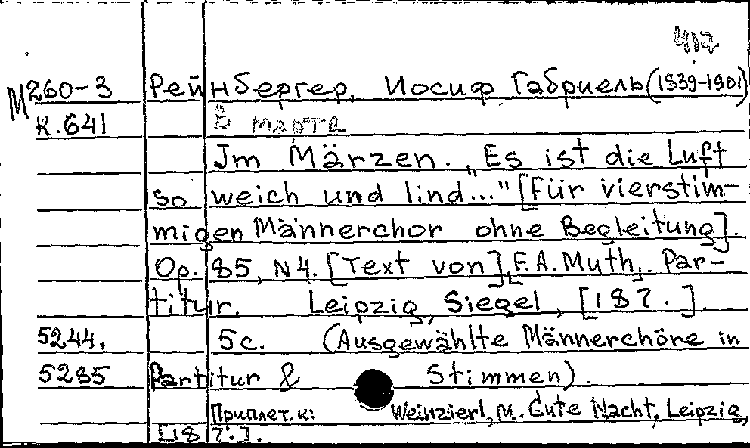 417
М260-3 Рейнбергер, Иосиф Габриель (1839-1901)
К.641 В марте
Jm Märzen. „Es ist die Luft
so weich und lind..." [Für vierstim-
migen Männerchor ohne Begleitung].
Op. 85, N4. [Text von] F.A. Muth. Par-
titur. Leipzig, Siegel, [187.]
5244, 5с. (Ausgewählte Männerchöre in
5285 Partitur & Stimmen).
Приплет. к: Weinzierl, M. Gute Nacht, Leipzig,
[187.].